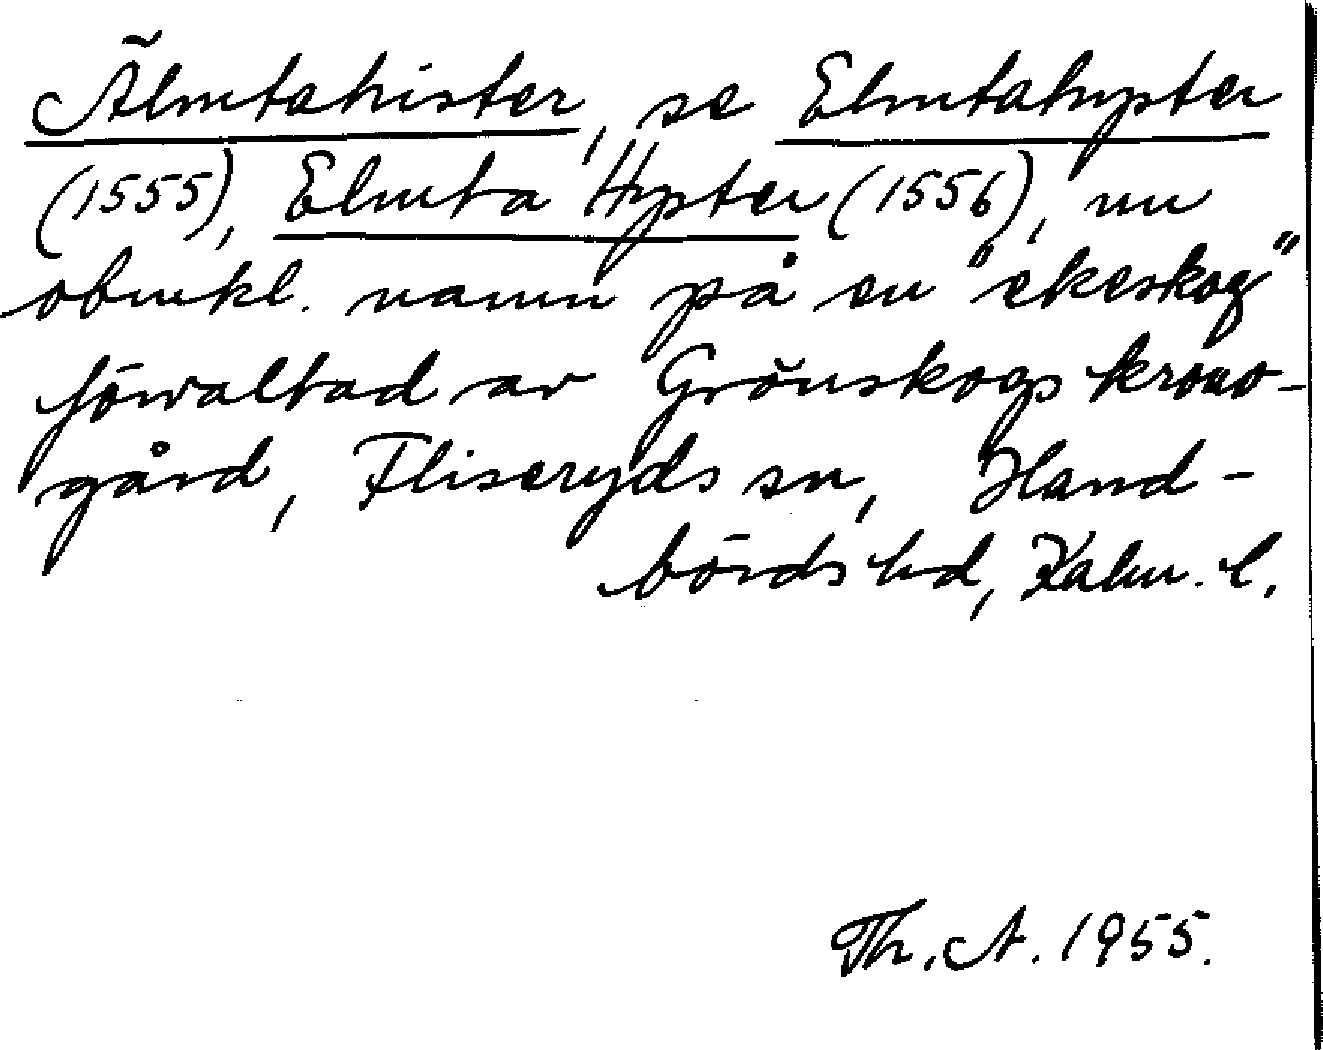 Älmtahister, se Elmtahypter
(1555), Elmta Hypter (1556), nu
obrukl. namn på en "ekeskog"
förvaltad av Grönskogs krono-
gård, Fliseryds sn, Hand-
börds hd, Kalm. l.
Th. A. 1955.